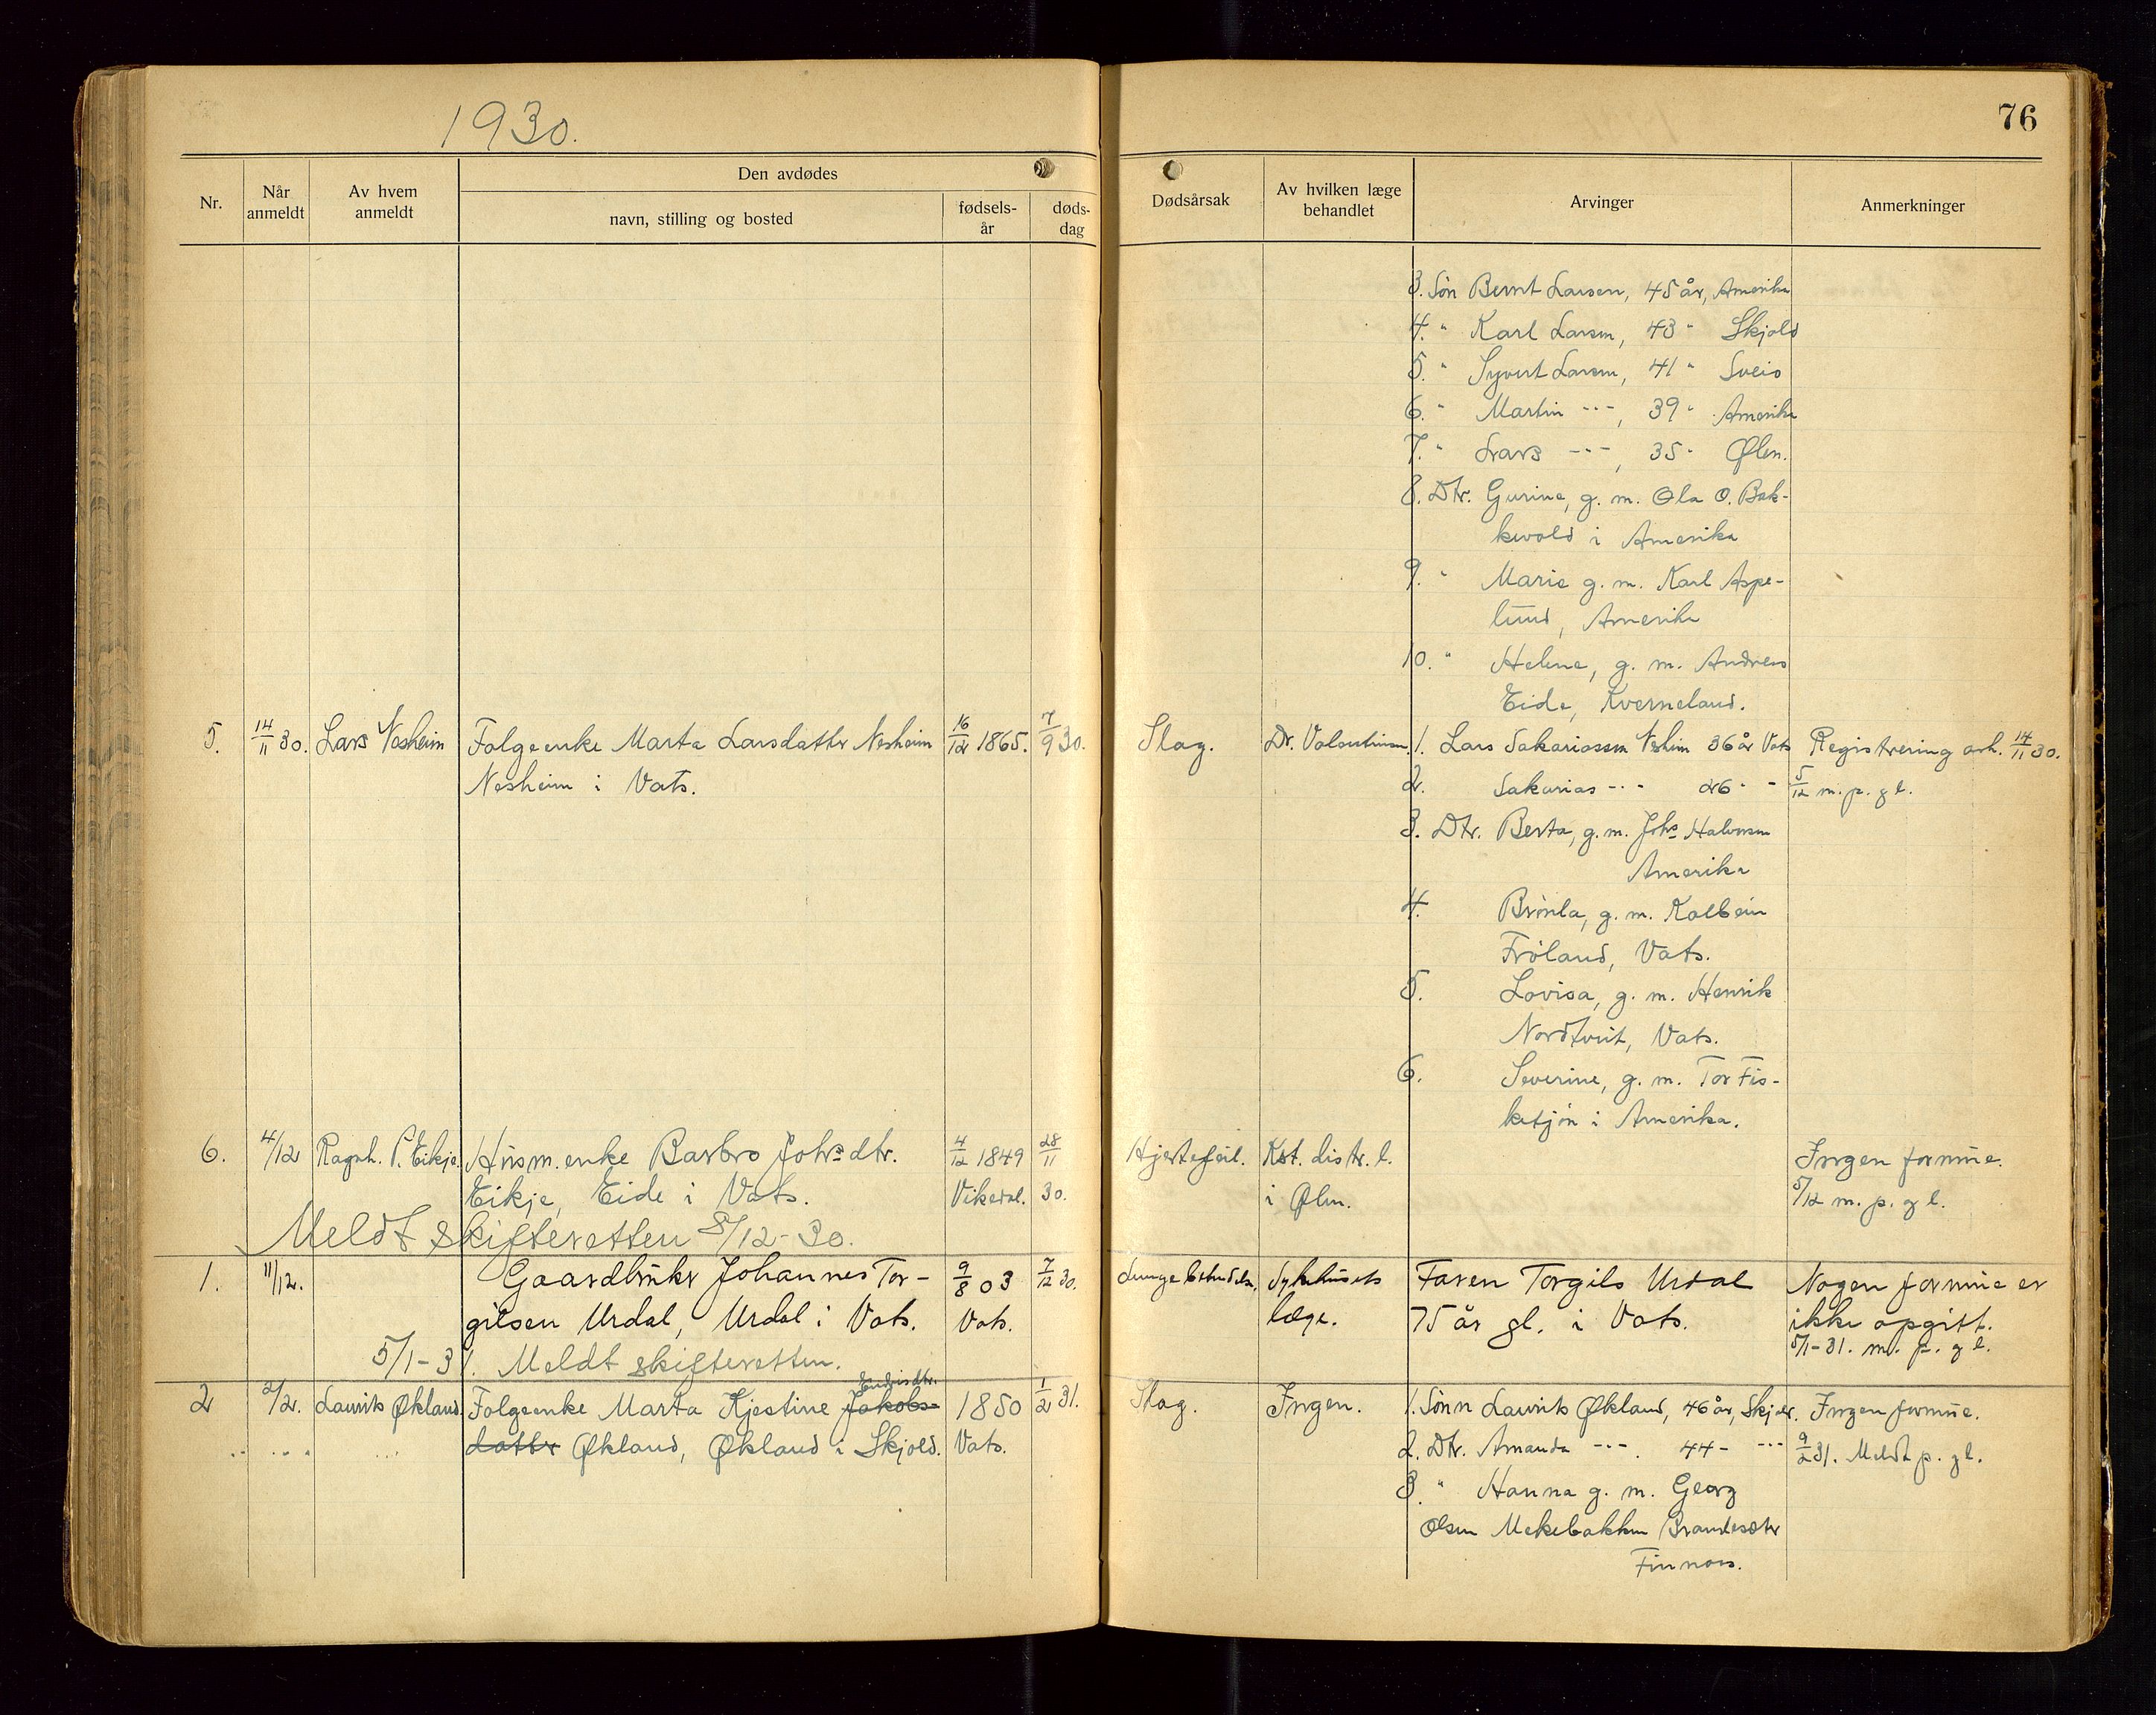 1930.
76
Nr.
Når anmeldt
Av hvem anmeldt
Den avdødes
navn, stilling og bosted
fødsels-år
døds-dag
Dødsårsak
Av hvilken læge behandlet
Arvinger
Anmerkninger
3. Søn Bernt Larsen, 45 år, Amerika
4. " Karl Larsen, 43 " Skjold
5. " Syvert Larsen, 41 " Sveio
6. " Martin -"-, 39 " Amerika
7. " Lars -"-, 35 " Ølen.
8. Dtr. Gurine, g. m. Ola O. Bak-
kevold i Amerika
9. " Marie g. m. Karl Aspe-
lund, Amerika
10. " Helene, g. m. Andreas
Eide, Kverneland.
5. 14/11 30. Lars Nesheim Folgeenke Marta Larsdatter Nesheim 16/12 1865. 7/9 30. Slag. Dr. Valentinsen 1. Lars Sakariassen Neshim 36 år Vats Registrering avh. 14/11 30.
Nesheim i Vats. 2. Sakarias -"- 26 " - 5/12 m. p. g l.
3. Dtr. Berta, g. m. Johs Halvorsen
Amerika
4. Brønla, g. m. Kolbein
Frøland, Vats.
5. Lovisa, g. m. Henrik
Nordtveit, Vats.
6. Severine, g. m. Tor Fis-
ketjøn i Amerika.
6. 4/12 Ragnh. P. Eikje Husm. enke Barbro Johs dtr. 4/12 1849 28/11 Hjertefeil. Kst. distr. l. Ingen formue.
Eikje, Eide i Vats. Vikedal. 30. i Ølen. 5/12 m. p. g l.
Meldt skifteretten 5/12-30.
1. 11/12. Gaardbruker Johannes Tor- 9/8 03 7/12 30. Lungebetendelse. Sykehusets Faren Torgils Urdal Nogen formue er
gilsen Urdal, Urdal i Vats. Vats. læge. 75 år gl. i Vats. ikke opgitt.
5/1-31. Meldt skifteretten. 5/1-31. m. p. g l.
Endresdtr.
2 2/2. Laurits Økland Folgeenke Marta Kjestine Jakobs- 1850 1/2 31. Slag. Ingen. 1. Sønn Laurits Økland, 46 år, Skjold. Ingen formue.
datter Økland, Økland i Skjold. Vats. 2. Dtr. Amanda -"-. 44 - -"- 9/2 31. Meldt p. g l.
3. " Hanna g. m. Georg
Olsen Mekebakken
Finnmars.